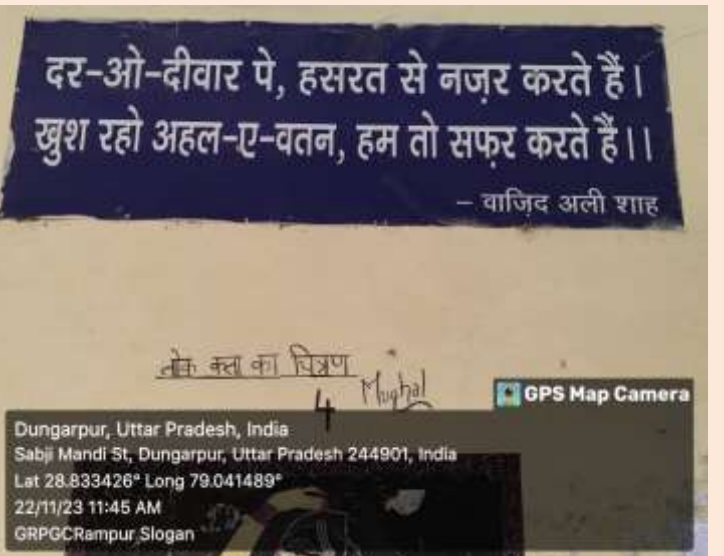 दर-ओ-दीवार पे, हसरत से नज़र करते हैं।
खुश रहो अहल-ए-वतन, हम तो सफ़र करते हैं।।
– वाजिद अली शाह
लोक कला का चित्रण
4 Mughal
GPS Map Camera
Dungarpur, Uttar Pradesh, India
Sabji Mandi St, Dungarpur, Uttar Pradesh 244901, India
Lat 28.833426° Long 79.041489°
22/11/23 11:45 AM
GRPGCRampur Slogan